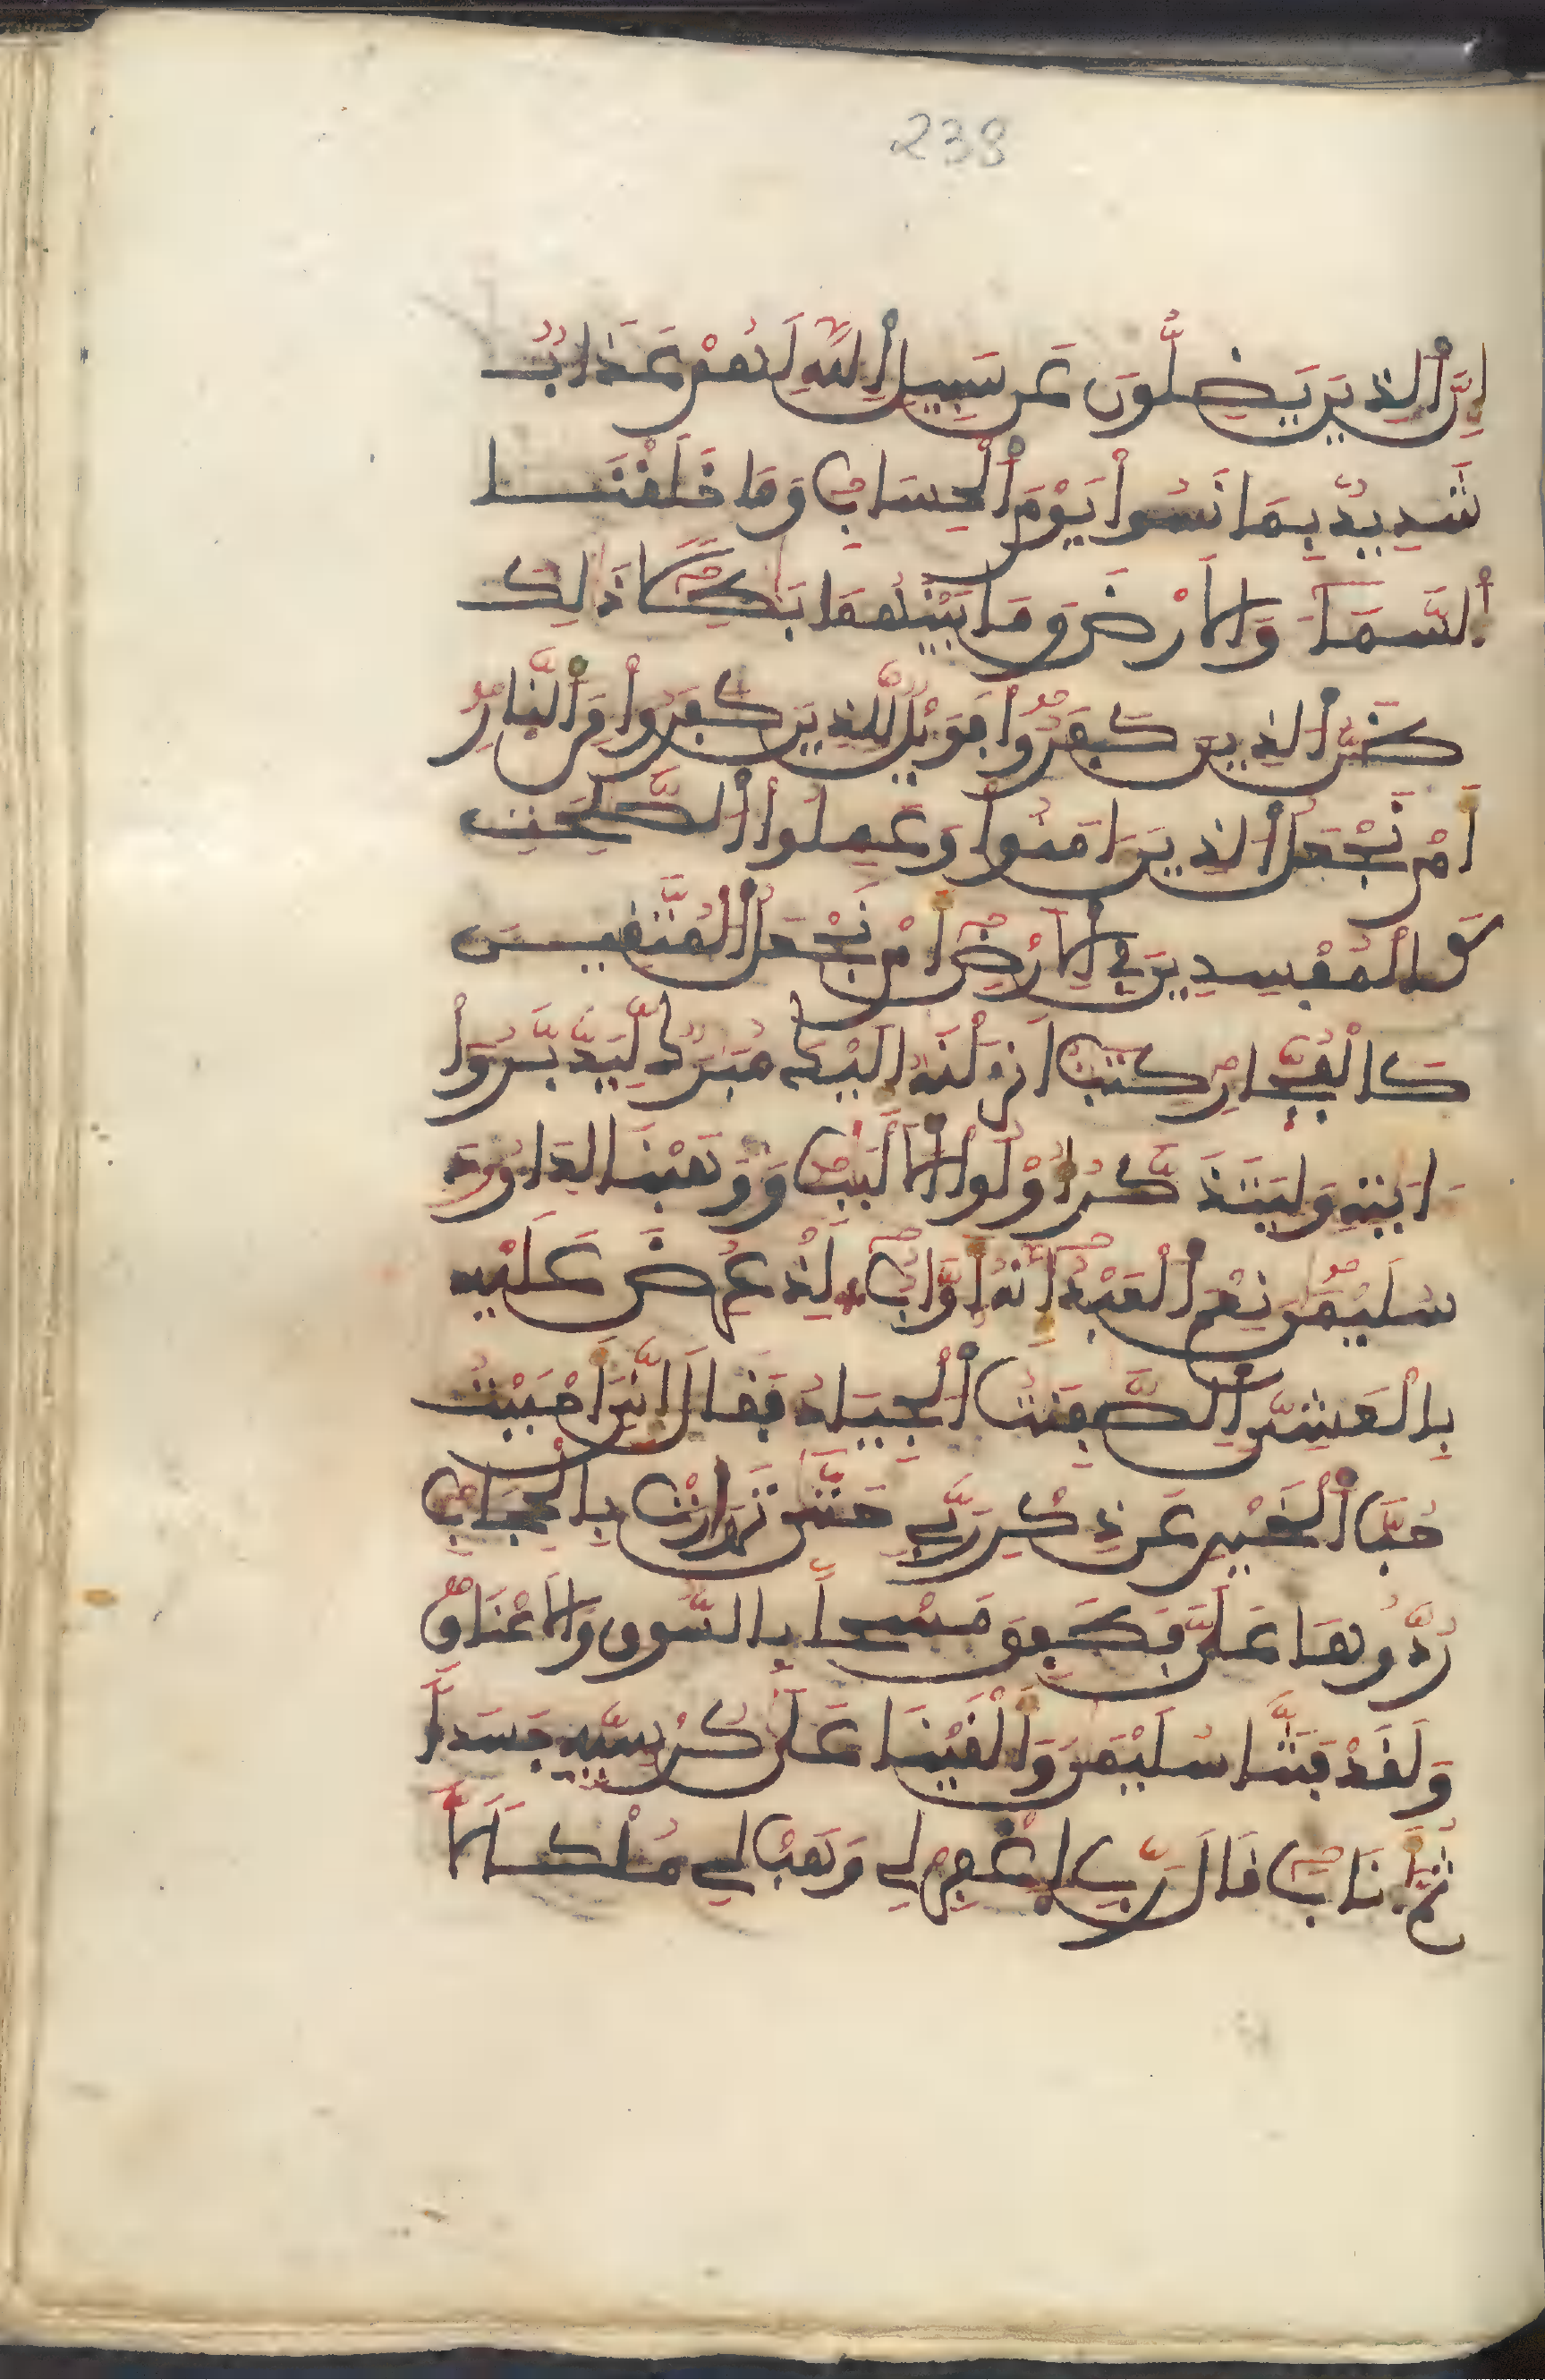 238
اِنَّ ٱلذِينَ يَضِلُّونَ عَن سَبِيلِ ٱللَّهِ لَهُمْ عَذَابٌ
شَدِيدٌ بِمَا نَسُوا۟ يَوْمَ ٱلْحِسَابِ وَمَا خَلَقْنَا
ٱلسَّمَآ وَالَارْضَ وَمَا بَيْنَهُمَا بَٰطِلًا ذَٰلِكَ
ظَنُّ ٱلذِينَ كَفَرُوا۟ فَوَيْلٌ لِّلذِينَ كَفَرُوا۟ مِنَ ٱلنّارِ
أَمْ نَجْعَلُ ٱلذِينَ ءَامَنُوا۟ وَعَمِلُوا۟ ٱلصَّٰلِحَٰتِ
كَالْمُفْسِدِينَ فِي ٱلَارْضِ أَمْ نَجْعَلُ ٱلْمُتَّقِينَ
كَالْفُجَّارِ كِتَٰبٌ اَنزَلْنَٰهُ إِلَيْكَ مُبَٰرَكٌ لِّيَدَّبَّرُوٓا۟
ءَايَٰتِهِ وَلِيَتَذَكَّرَ أُو۟لُوا۟ ٱلَالْبَٰبِ وَوَهَبْنَا لِدَاوُۥدَ
سُلَيْمَٰنَ نِعْمَ ٱلْعَبْدُ إِنَّهُۥٓ أَوَّابٌ إِذْ عُرِضَ عَلَيْهِ
بِالْعَشِيِّ ٱلصَّٰفِنَٰتُ ٱلْجِيَادُ فَقَالَ إِنِّيَ أَحْبَبْتُ
حُبَّ ٱلْخَيْرِ عَن ذِكْرِ رَبِّي حَتَّىٰ تَوَارَتْ بِالْحِجَابِ
رُدُّوهَا عَلَيَّ فَطَفِقَ مَسْحًا بِالسُّوقِ وَالَاعْنَاقِ
وَلَقَدْ فَتَنَّا سُلَيْمَٰنَ وَأَلْقَيْنَا عَلَىٰ كُرْسِيِّهِ جَسَدًا
ثُمَّ أَنَابَ قَالَ رَبِّ ٱغْفِرْ لِي وَهَبْ لِي مُلْكًا لَّا